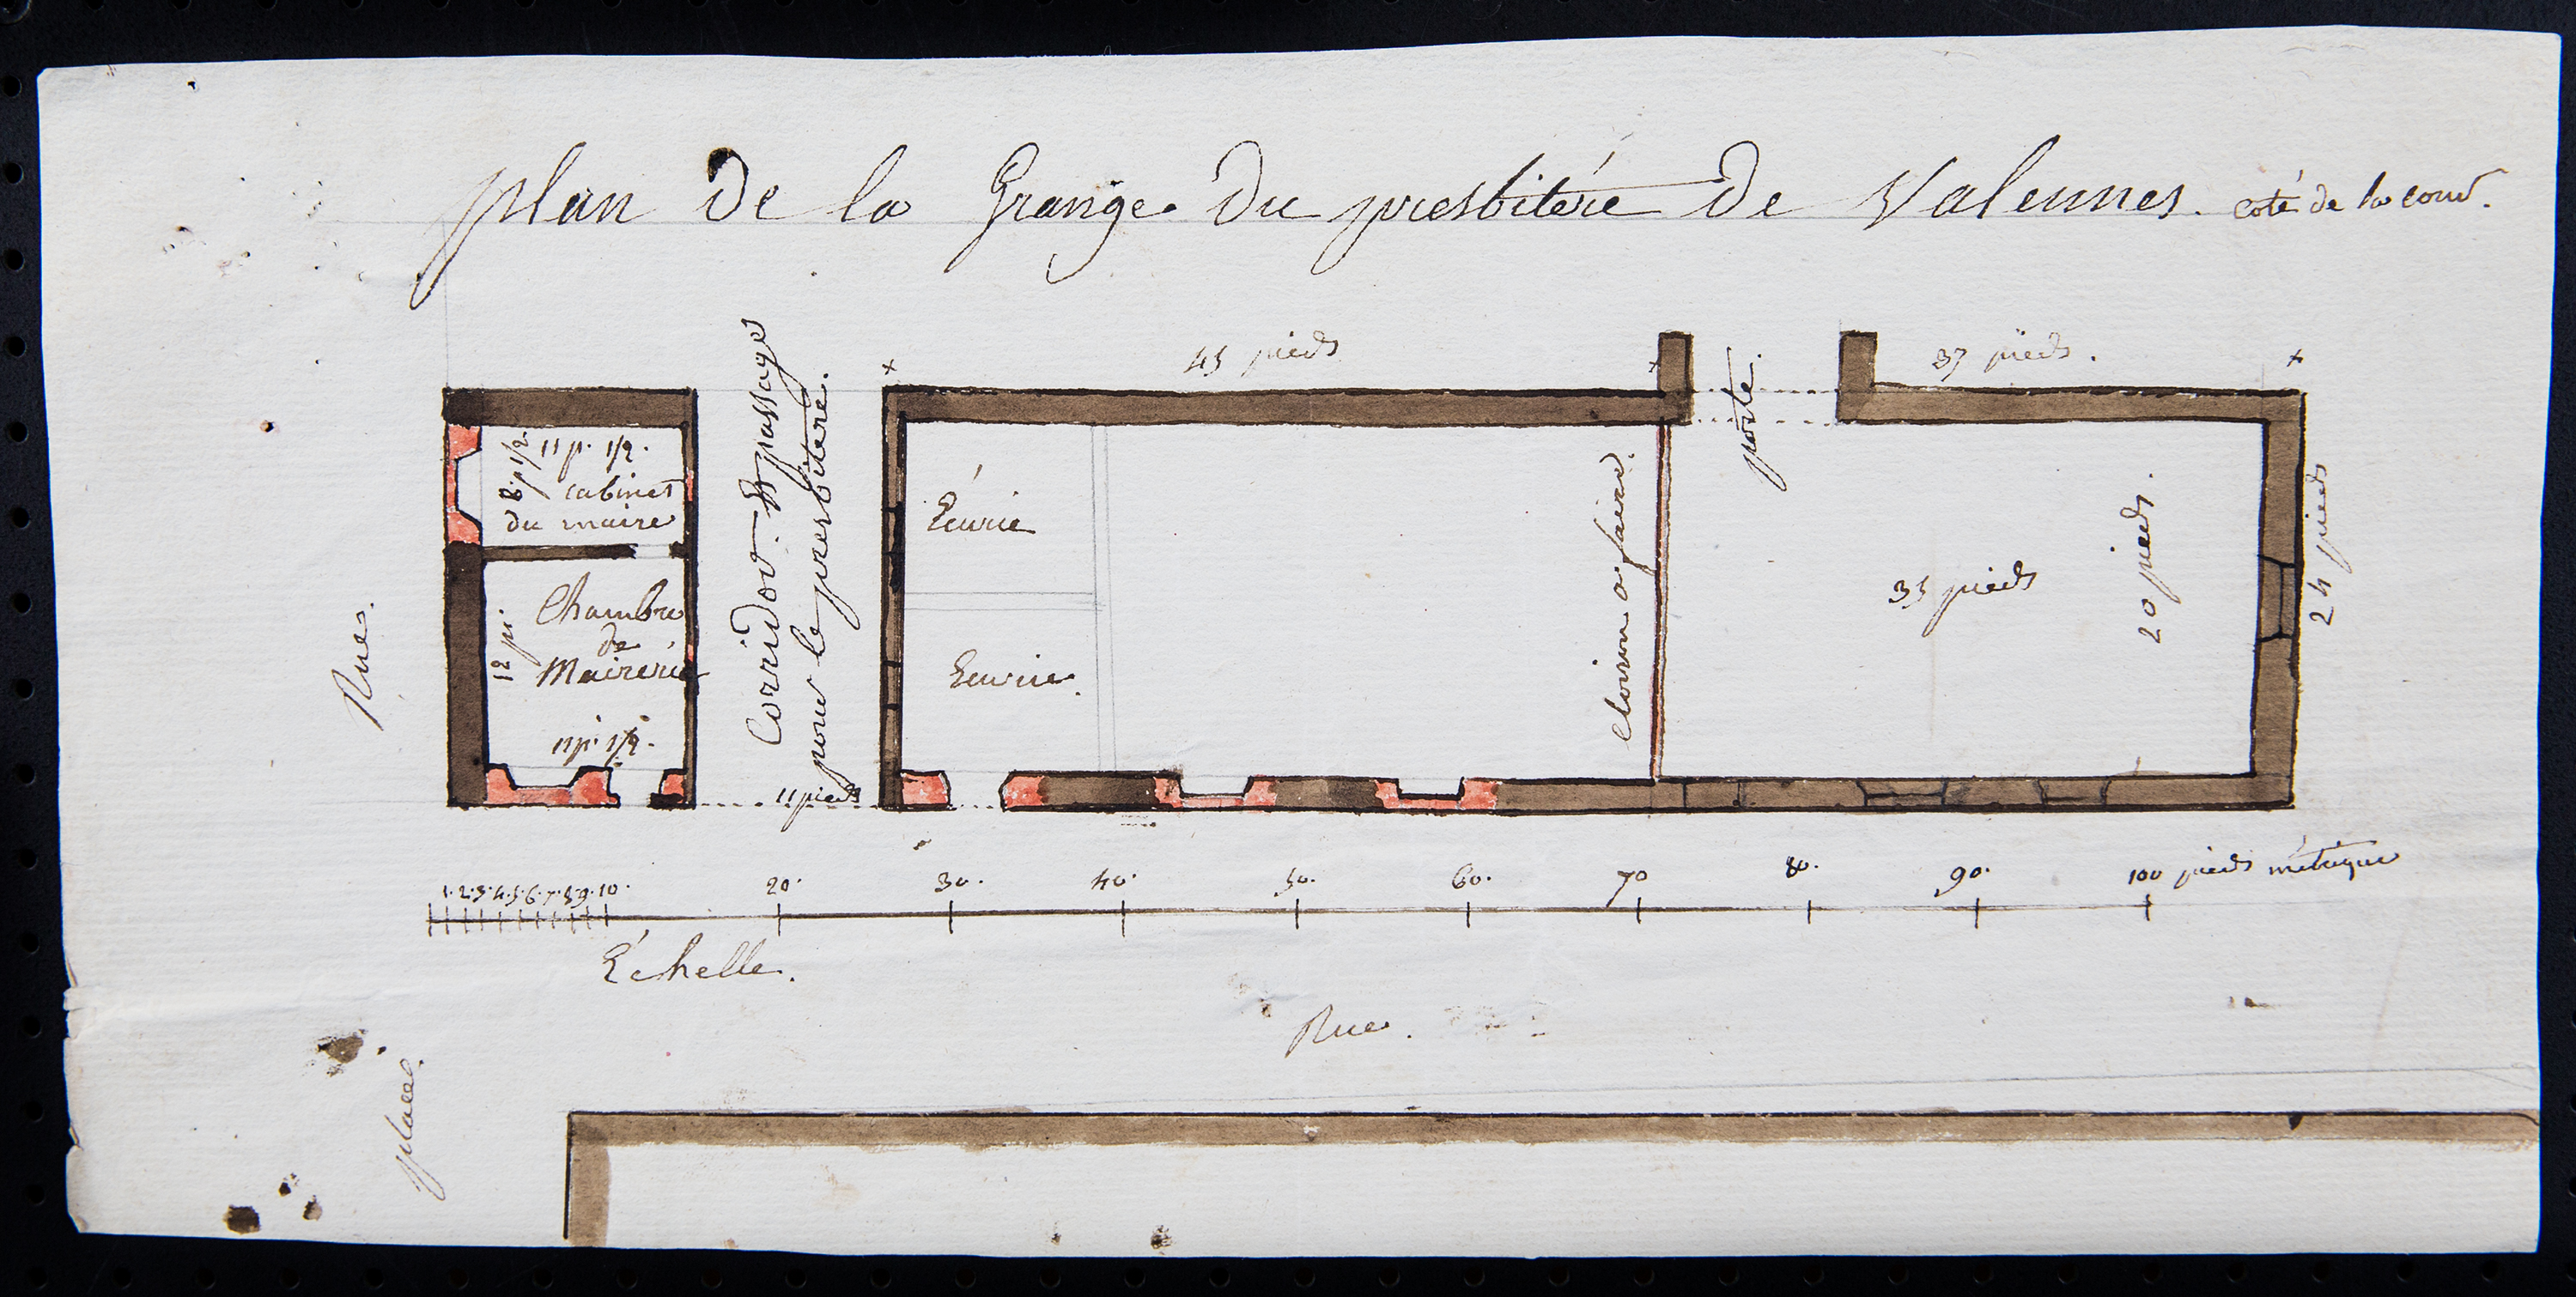 plan de la Grange du presbitére de Valennes. coté de la cour.
45 pieds
37 pieds.
porte.
8.p 1/2.
11 p. 1/2.
cabinet
du maire
Corridor. & passage
pour le presbitere.
Écurie
Ecurie.
cloison a faire.
35 pieds
20 pieds.
24 pieds
Rue.
12 pi
Chambre
de
Mairerie
11 p. 1/2.
11 pieds
1. 2. 3. 4. 5. 6. 7. 8. 9. 10. 20. 30. 40. 50. 60. 70 80. 90. 100 pieds métrique
Échelle.
Rue.
place.